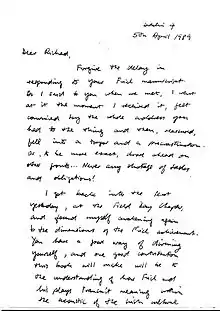 Dublin 4
5th April 1989
Dear Richard,
Forgive the delay in
responding to your Friel manuscript.
As I said to you when we met, I went
at it the moment I received it, felt
convinced by the whole
had to the thing and then, reassured,
fell into a torpor and a procrastination.
Or, to be more exact, dived ahead on
other fronts... Never any shortage of tasks
and obligations!
I got back into the text
yesterday, at the Field Day
and found myself awakening again
to the dimensions of the Friel achievement.
You have a good way of
yourself, and one good contribution
this book will make will be to
the understanding of how Friel and
his plays transmit meaning within
the acoustic of the Irish cultural